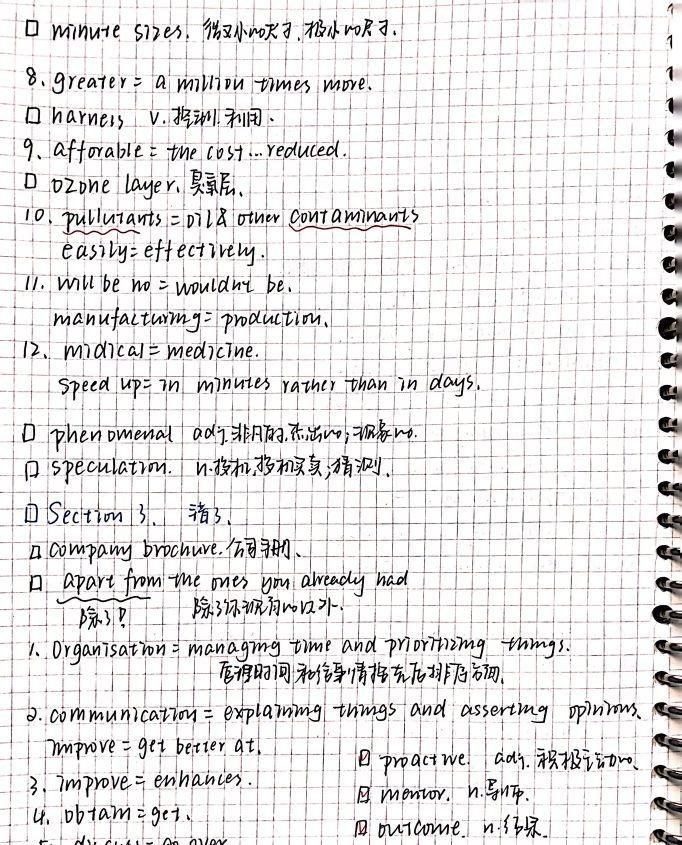 □ minute sizes. 微小的尺寸.极小的尺寸.
8. greater = a million times more.
□ harness v. 控制.利用.
9. afforable = the cost...reduced.
□ ozone layer. 臭氧层.
10. pullutants = oil & other contaminants
easily = effectively.
11. will be no = wouldn't be.
manufacturing = production.
12. midical = medicine.
speed up = in minutes rather than in days.
□ phenomenal adj. 非凡的.杰出的;现象的.
□ speculation. n.投机,投机买卖;猜测.
□ Section 3. 错3.
□ company brochure. 公司手册.
□ apart from the ones you already had
除了! 除了你现有的以外.
1. Organisation = managing time and prioritizing things.
管理时间和给事情按先后排序
2. communication = explaining things and asserting opinions.
improve = get better at.
□ proactive. adj. 积极主动的.
3. improve = enhances.
□ mentor. n.导师.
4. obtain = get.
□ outcome. n.结果.
5. discuss = go over